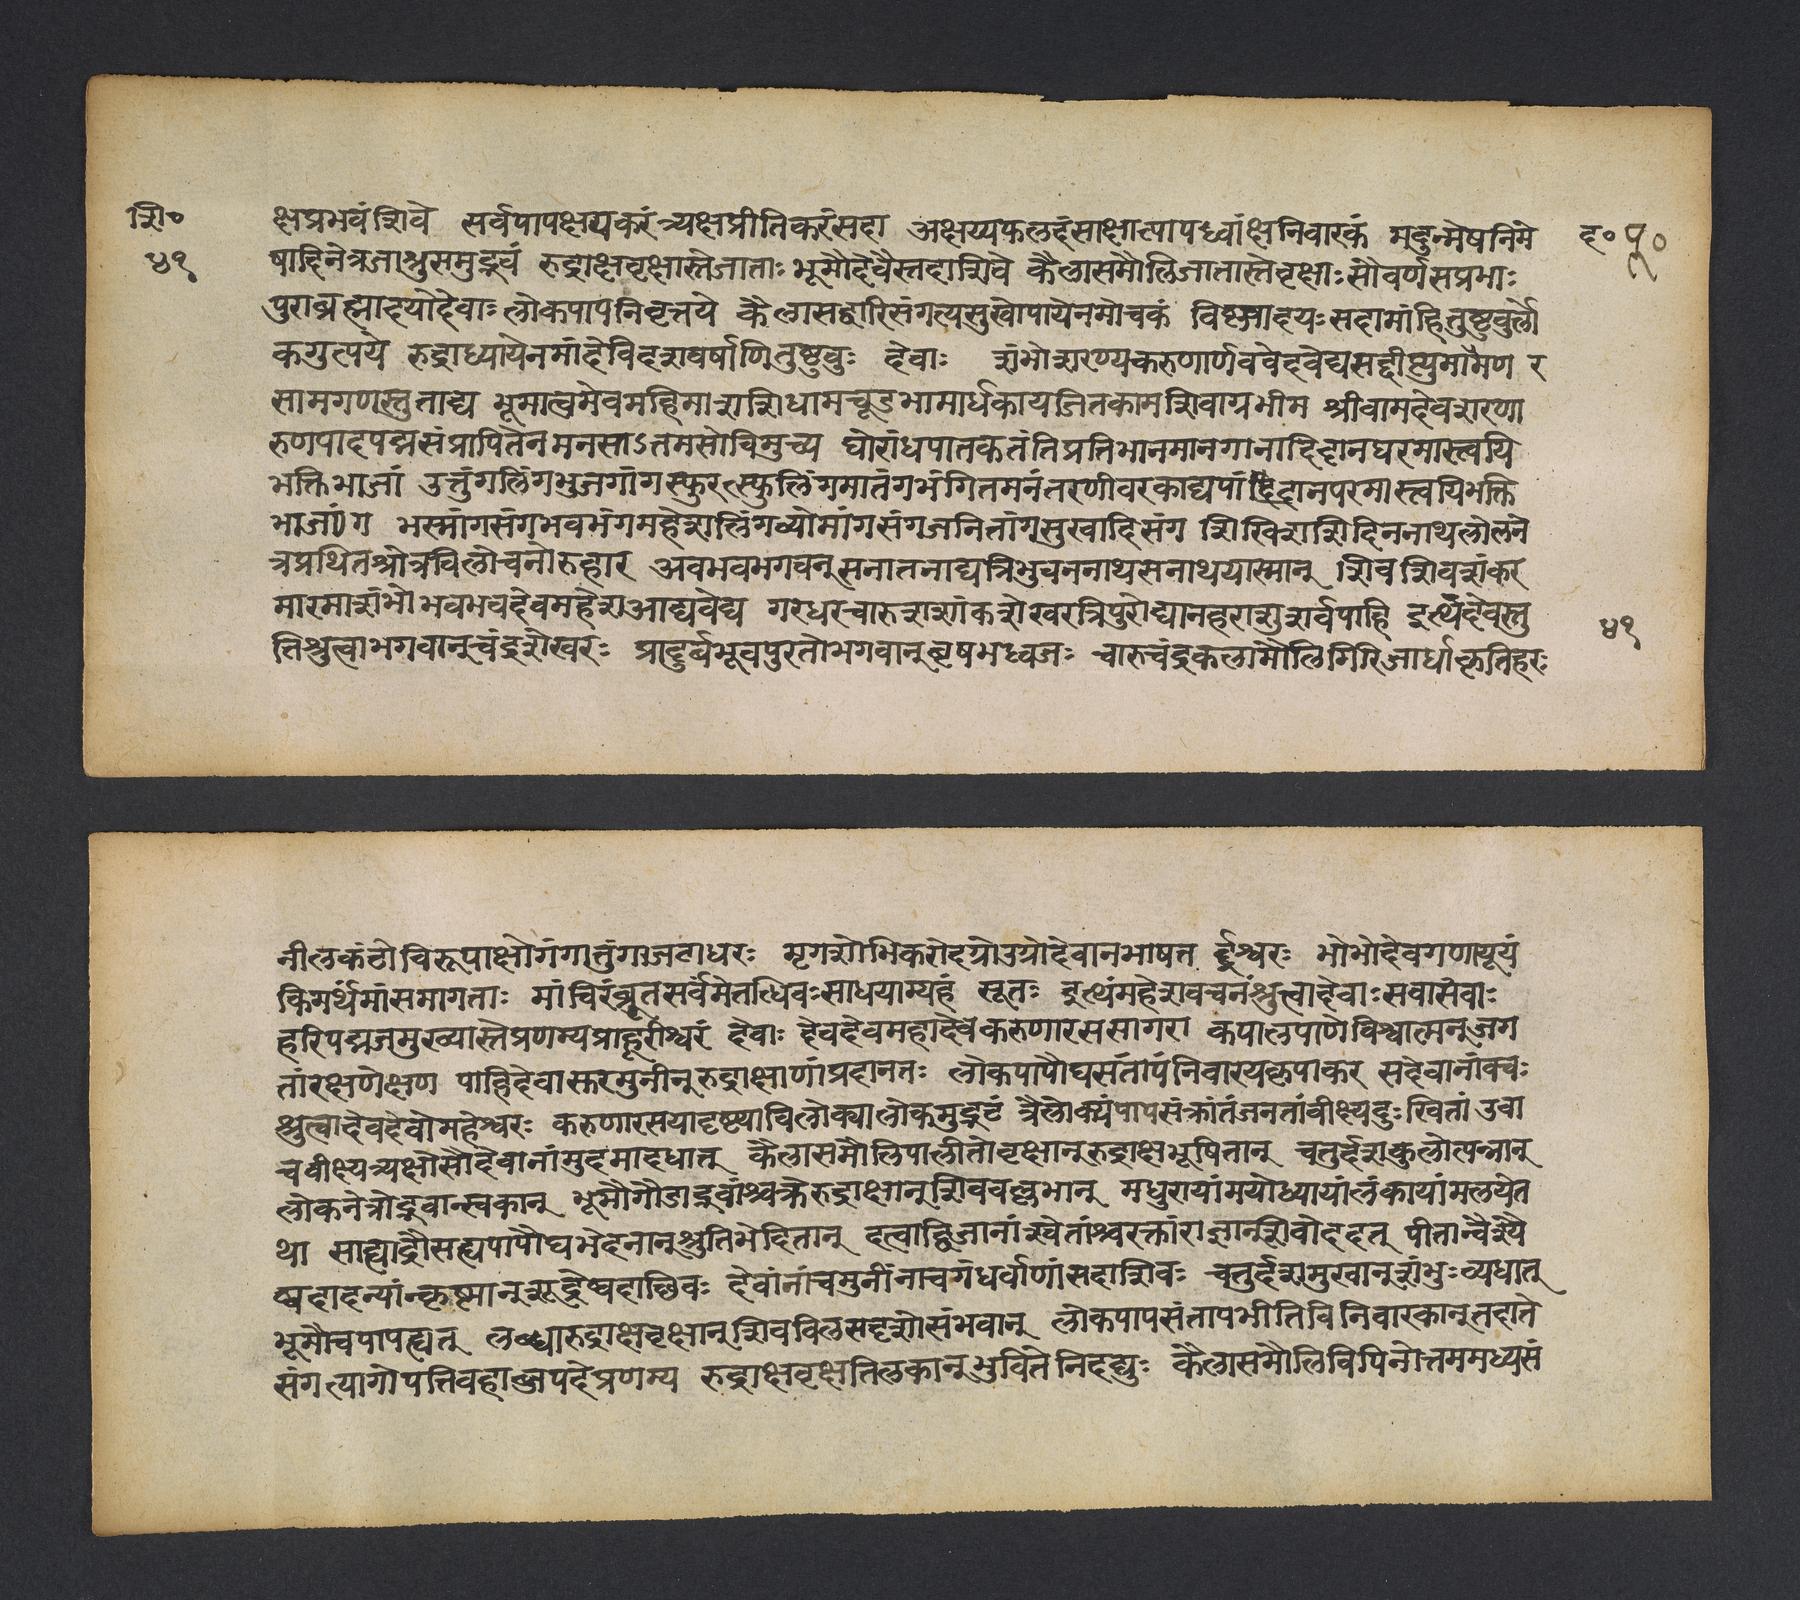 शि॰
४१
क्षप्रभवंशिवे सर्वपापक्षयकरंत्र्यक्षप्रीतिकरंसदा अक्षय्यफलदंसाक्षात्पापध्वांक्षनिवारकं मदुन्मेषनिमे
द॰ पू॰
षादिनेत्रजाश्रुसमुद्भवं रुद्राक्षवृक्षास्तेजाताः भूमौदेवैस्तदाशिवे कैलासमौलिजातास्तेवृक्षाःसौवर्णसप्रभाः
पुराब्रह्मादयोदेवाः लोकपापनिवृत्तये कैलासद्वारिसंगत्यसुखोपायेनमोचकं विष्ण्वादयःसदामांहितुष्टुवुर्लो
कगुप्तये रुद्राध्यायेनमांदेविदशवर्षाणितुष्टुवुः देवाः शंभोशरण्यकरुणार्णववेदवेद्यसद्दीप्त्युमारमण र
सामगणस्तुताद्य भूमात्वमेवमहिमाशशिधामचूडभामार्धकायजितकामशिवाग्र्यभीम श्रीवामदेवशरणा
रुणपादपद्मसंप्रापितेनमनसाऽतमसोविमुच्य घोरांधपातकततिप्रतिभानमानगानादिदानपरमास्त्वयि
भक्तिभाजां उत्तुंगलिंगभुजगांगस्फुरत्स्फुलिंगमातंगभंगितमनंतरणीवरकाद्यपां दिदानपरमास्त्वयिभक्ति
भाजांग भस्मांगसंगभवभंगमहेशलिंगव्योमांगसंगजनितांगसुखादिसंग शिखिशशिदिननाथलोलने
त्रप्रथितश्रोत्रविलोचनोरुहार अवभवभगवन्सनातनाद्यत्रिभुवननाथसनाथयास्मान् शिवशिवशंकर
मारमारशंभो भवभवदेवमहेशआद्यवेद्य गरधरचारुशशांकशेखरत्रिपुरोद्यानहराशुशर्वपाहि इत्थंदेवस्तु
४१
तिंश्रुत्वाभगवान्चंद्रशेखरः प्रादुर्बभूवपुरतोभगवान्वृषभध्वजः चारुचंद्रकलामौलिगिरिजार्धाकृतिर्हरः
नीलकंठोविरूपाक्षोगंगातुंगाजटाधरः मृगशोभिकरोदग्रोउग्रोदेवानभाषत ईश्वरः भोभोदेवगणायूयं
किमर्थंमांसमागताः मांचिरंब्रूतसर्वमेतत्धिवःसाधयाम्यहं सूतः इत्थंमहेशवचनंश्रुत्वादेवाःसवासवाः
हरिपद्मजमुख्यास्तेप्रणम्यप्राहुरीश्वरं देवाः देवदेवमहादेवकरुणारससागरा कपालपाणेविश्वात्मन्जग
तांरक्षणेक्षण पाहिदेवास्तरमुनीन्रुद्राक्षाणांप्रदानतः लोकपापौघसंतापंनिवारयकृपाकर सदेवानांवचः
श्रुत्वादेवदेवोमहेश्वरः करुणारसयादृष्ट्याविलोक्यालोकमुद्भटं त्रैलोक्यंपापसंक्रांतंजनतांवीक्ष्यदुःखितां उवा
चवीक्ष्यत्र्यक्षोसौदेवानांमुदमादधात् कैलासमौलिपालीतोवृक्षान्रुद्राक्षभूषितान् चतुर्दशकुलोत्पन्नान्
लोकनेत्रोद्भवान्स्वकान् भूमौगौडोद्भवांश्चक्रेरुद्राक्षान्शिववल्लभान् मधुरायांमयोध्यायांलंकायांमलयेत
था साह्याद्रौसह्यपापौघभेदनान्श्रुतिभेदितान् दत्वाद्विजानांश्वेतांश्चरक्तांराज्ञान्शिवोददत् पीतान्वैश्ये
ष्वदादन्यांन्कृष्णान्शूद्रेष्वदाच्छिवः देवांनांचमुनींनाचगंधर्वाणांसदाशिवः चतुर्दशमुखान्शंभुःव्यधात्
भूमौचपापहृत् लब्ध्वारुद्राक्षवृक्षान्शिवविलसद्दृशोसंभवान् लोकपापसंतापभीतिविनिवारकान्तदाते
संगत्यागोपतिवहाब्जपदेप्रणम्य रुद्राक्षवृक्षतिलकान्भुवितेनिदध्युः कैलासमौलिविपिनोत्तममध्यसं